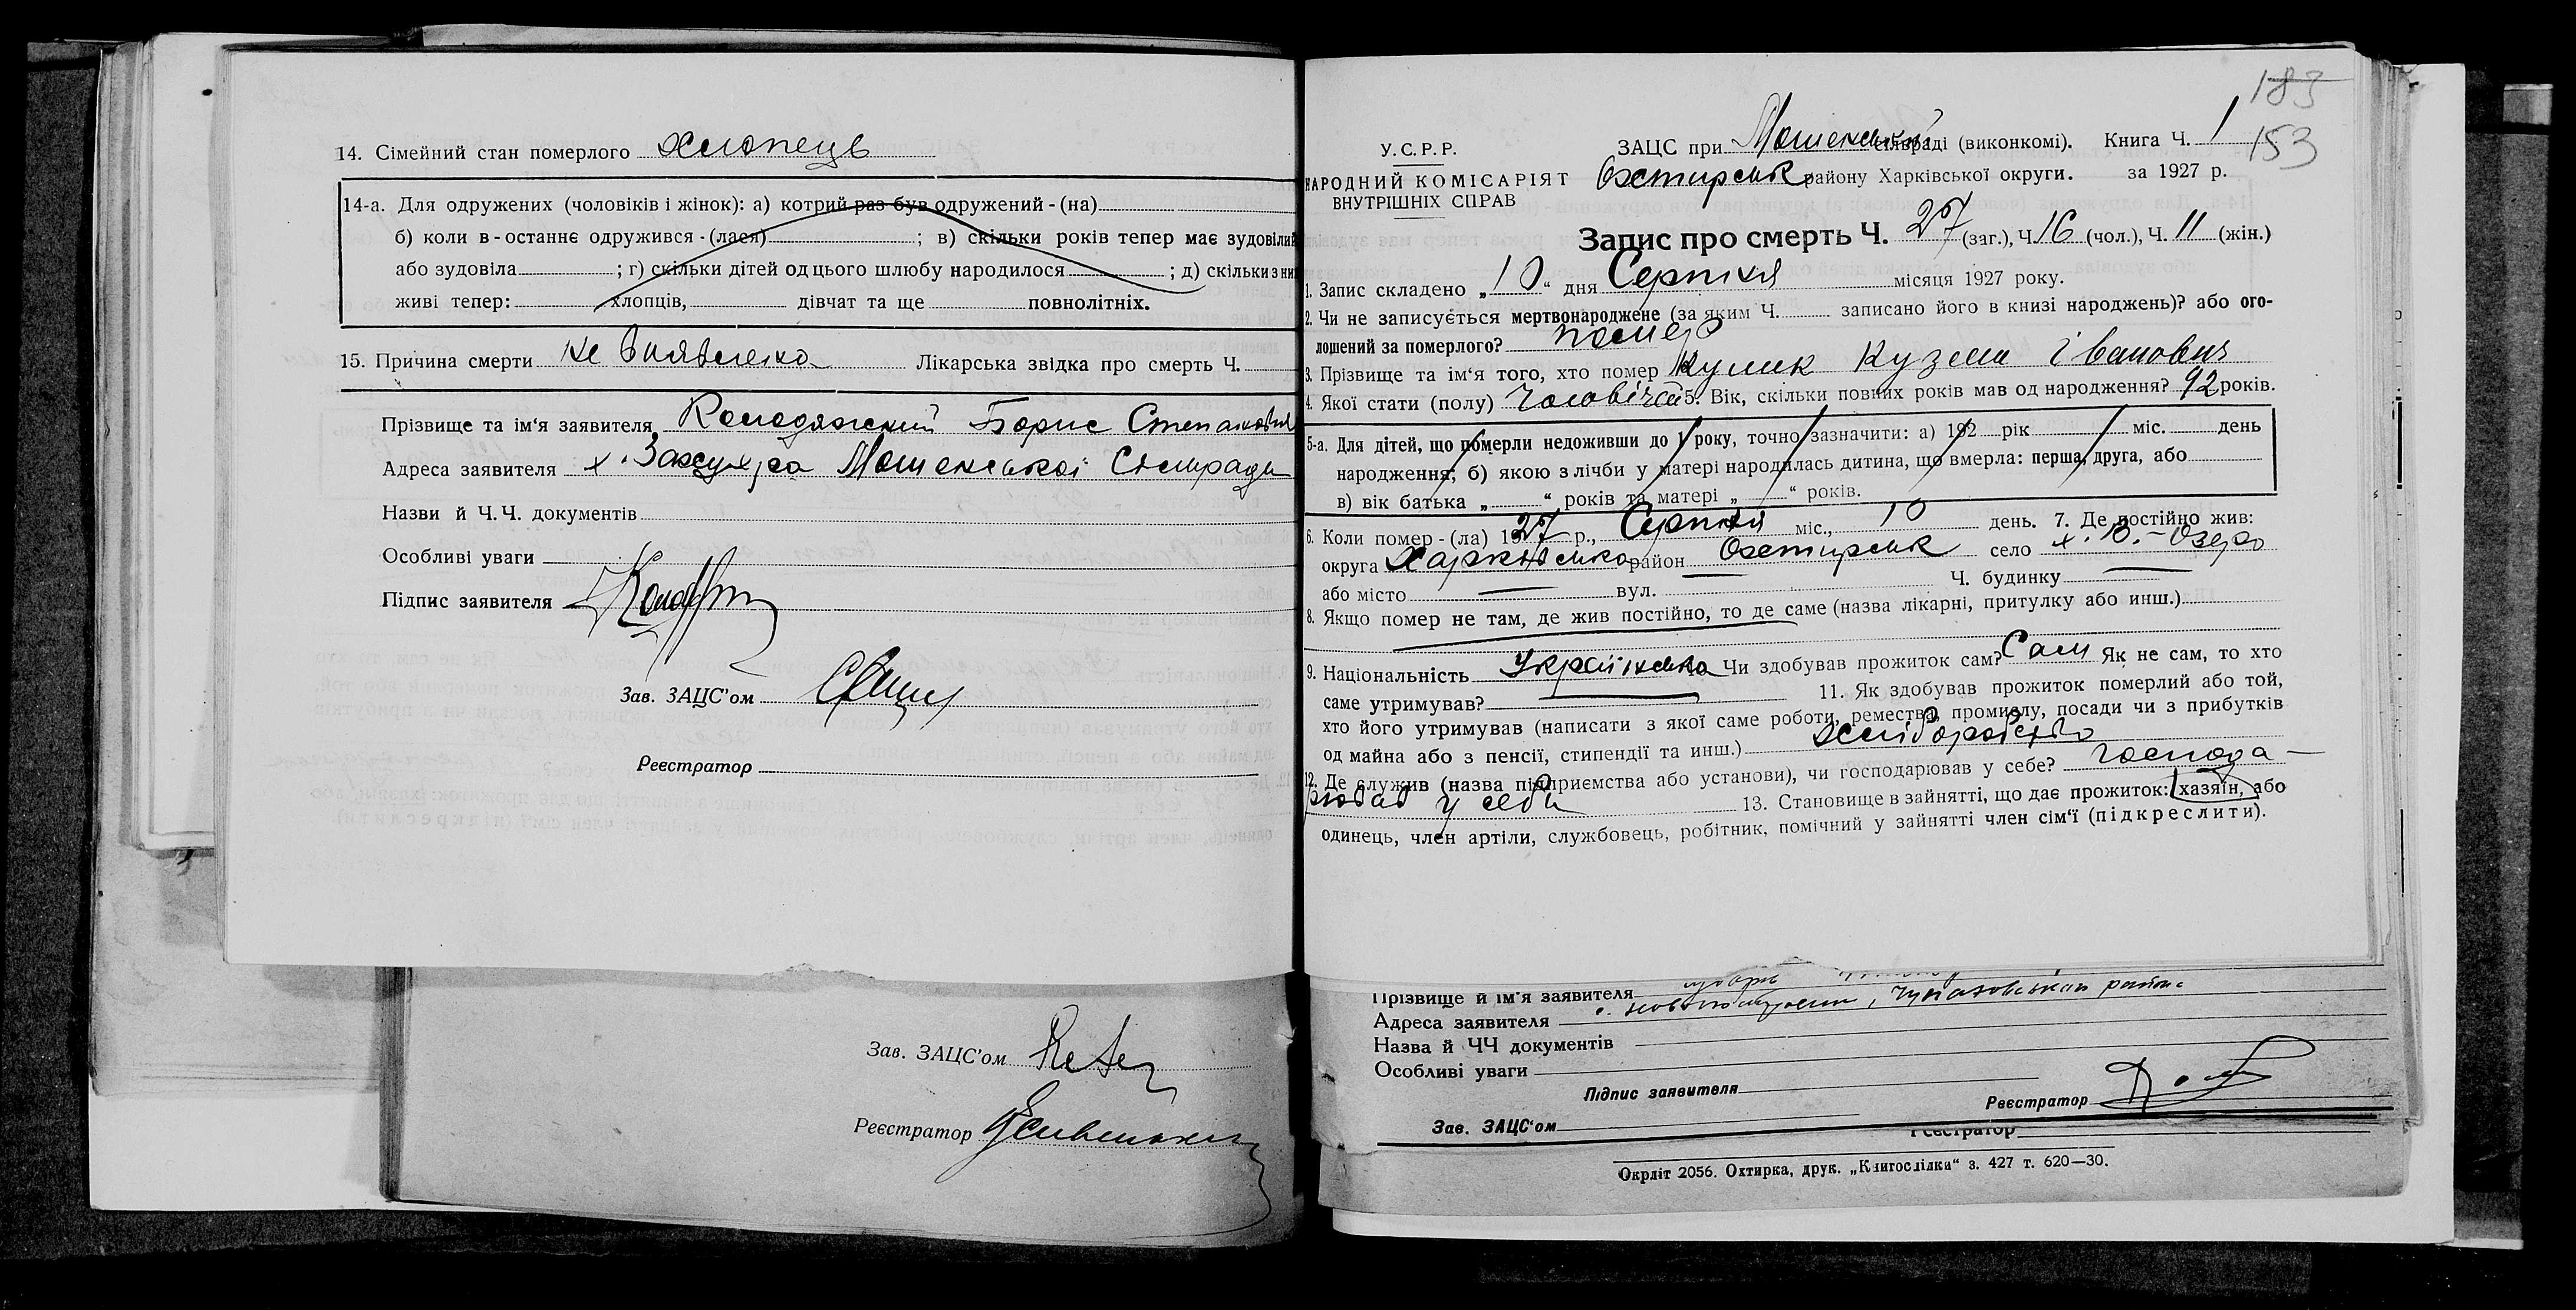 14. Сімейний стан померлого хлопець
14-а. Для одружених (чоловіків і жінок): а) котрий раз був одружений - (на)
б) коли в-останнє одружився - (лася) ; в) скільки років тепер має зудовілий
або зудовіла ; г) скільки дітей од цього шлюбу народилося ; д) скільки з ни
живі тепер: хлопців, дівчат та ще повнолітніх.
15. Причина смерти не виявлено Лікарська звідка про смерть Ч.
Прізвище та ім'я заявителя Колодяжский Борис Степанович
Адреса заявителя х. Мошенської Сільради
Назви й Ч.Ч. документів
Особливі уваги
Підпис заявителя
Зав. ЗАЦС'ом
Реєстратор
Зав. ЗАЦС'ом
Реєстратор
183
153
У.С.Р.Р.
НАРОДНИЙ КОМІСАРІЯТ
ВНУТРІШНІХ СПРАВ
ЗАЦС при Мошенській сільраді (виконкомі). Книга Ч. 1
Охтирськ району Харківської округи. за 1927 р.
Запис про смерть Ч. 27 (заг.), Ч. 16 (чол.), Ч. 11 (жін.)
1. Запис складено „10“ дня Серпня місяця 1927 року.
2. Чи не записується мертвонароджене (за яким Ч. записано його в книзі народжень)? або ого-
лошений за померлого? помер
3. Прізвище та ім'я того, хто помер Кулик Кузьма Іванович
4. Якої стати (полу) Чоловічої 5. Вік, скільки повних років мав од народження? 92 років.
5-а. Для дітей, що померли недоживши до 1 року, точно зазначити: а) 192 рік міс. день
народження; б) якою з лічби у матері народилась дитина, що вмерла: перша, друга, або
в) вік батька „ “ років та матері „ “ років.
6. Коли помер - (ла) 1927 р., Серпня міс., 10 день. 7. Де постійно жив:
округа Харківська район Охтирськ село х. В.-Озеро
або місто вул. Ч. будинку
8. Якщо помер не там, де жив постійно, то де саме (назва лікарні, притулку або инш.)
9. Національність Українська 10. Чи здобував прожиток сам? Сам Як не сам, то хто
саме утримував? 11. Як здобував прожиток померлий або той,
хто його утримував (написати з якої саме роботи, ремества, промислу, посади чи з прибутків
од майна або з пенсії, стипендії та инш.) хліборобство
12. Де служив (назва підприємства або установи), чи господарював у себе? господа-
рював у себе 13. Становище в зайнятті, що дає прожиток: хазяїн, або
одинець, член артіли, службовець, робітник, помічний у зайнятті член сім'ї (підкреслити).
Прізвище й ім'я заявителя
Адреса заявителя
Назва й ЧЧ документів
Особливі уваги
Підпис заявителя
Реєстратор
Зав. ЗАЦС'ом
Реєстратор
Окрліт 2056. Охтирка, друк. „Книгоспілка“ з. 427 т. 620—30.